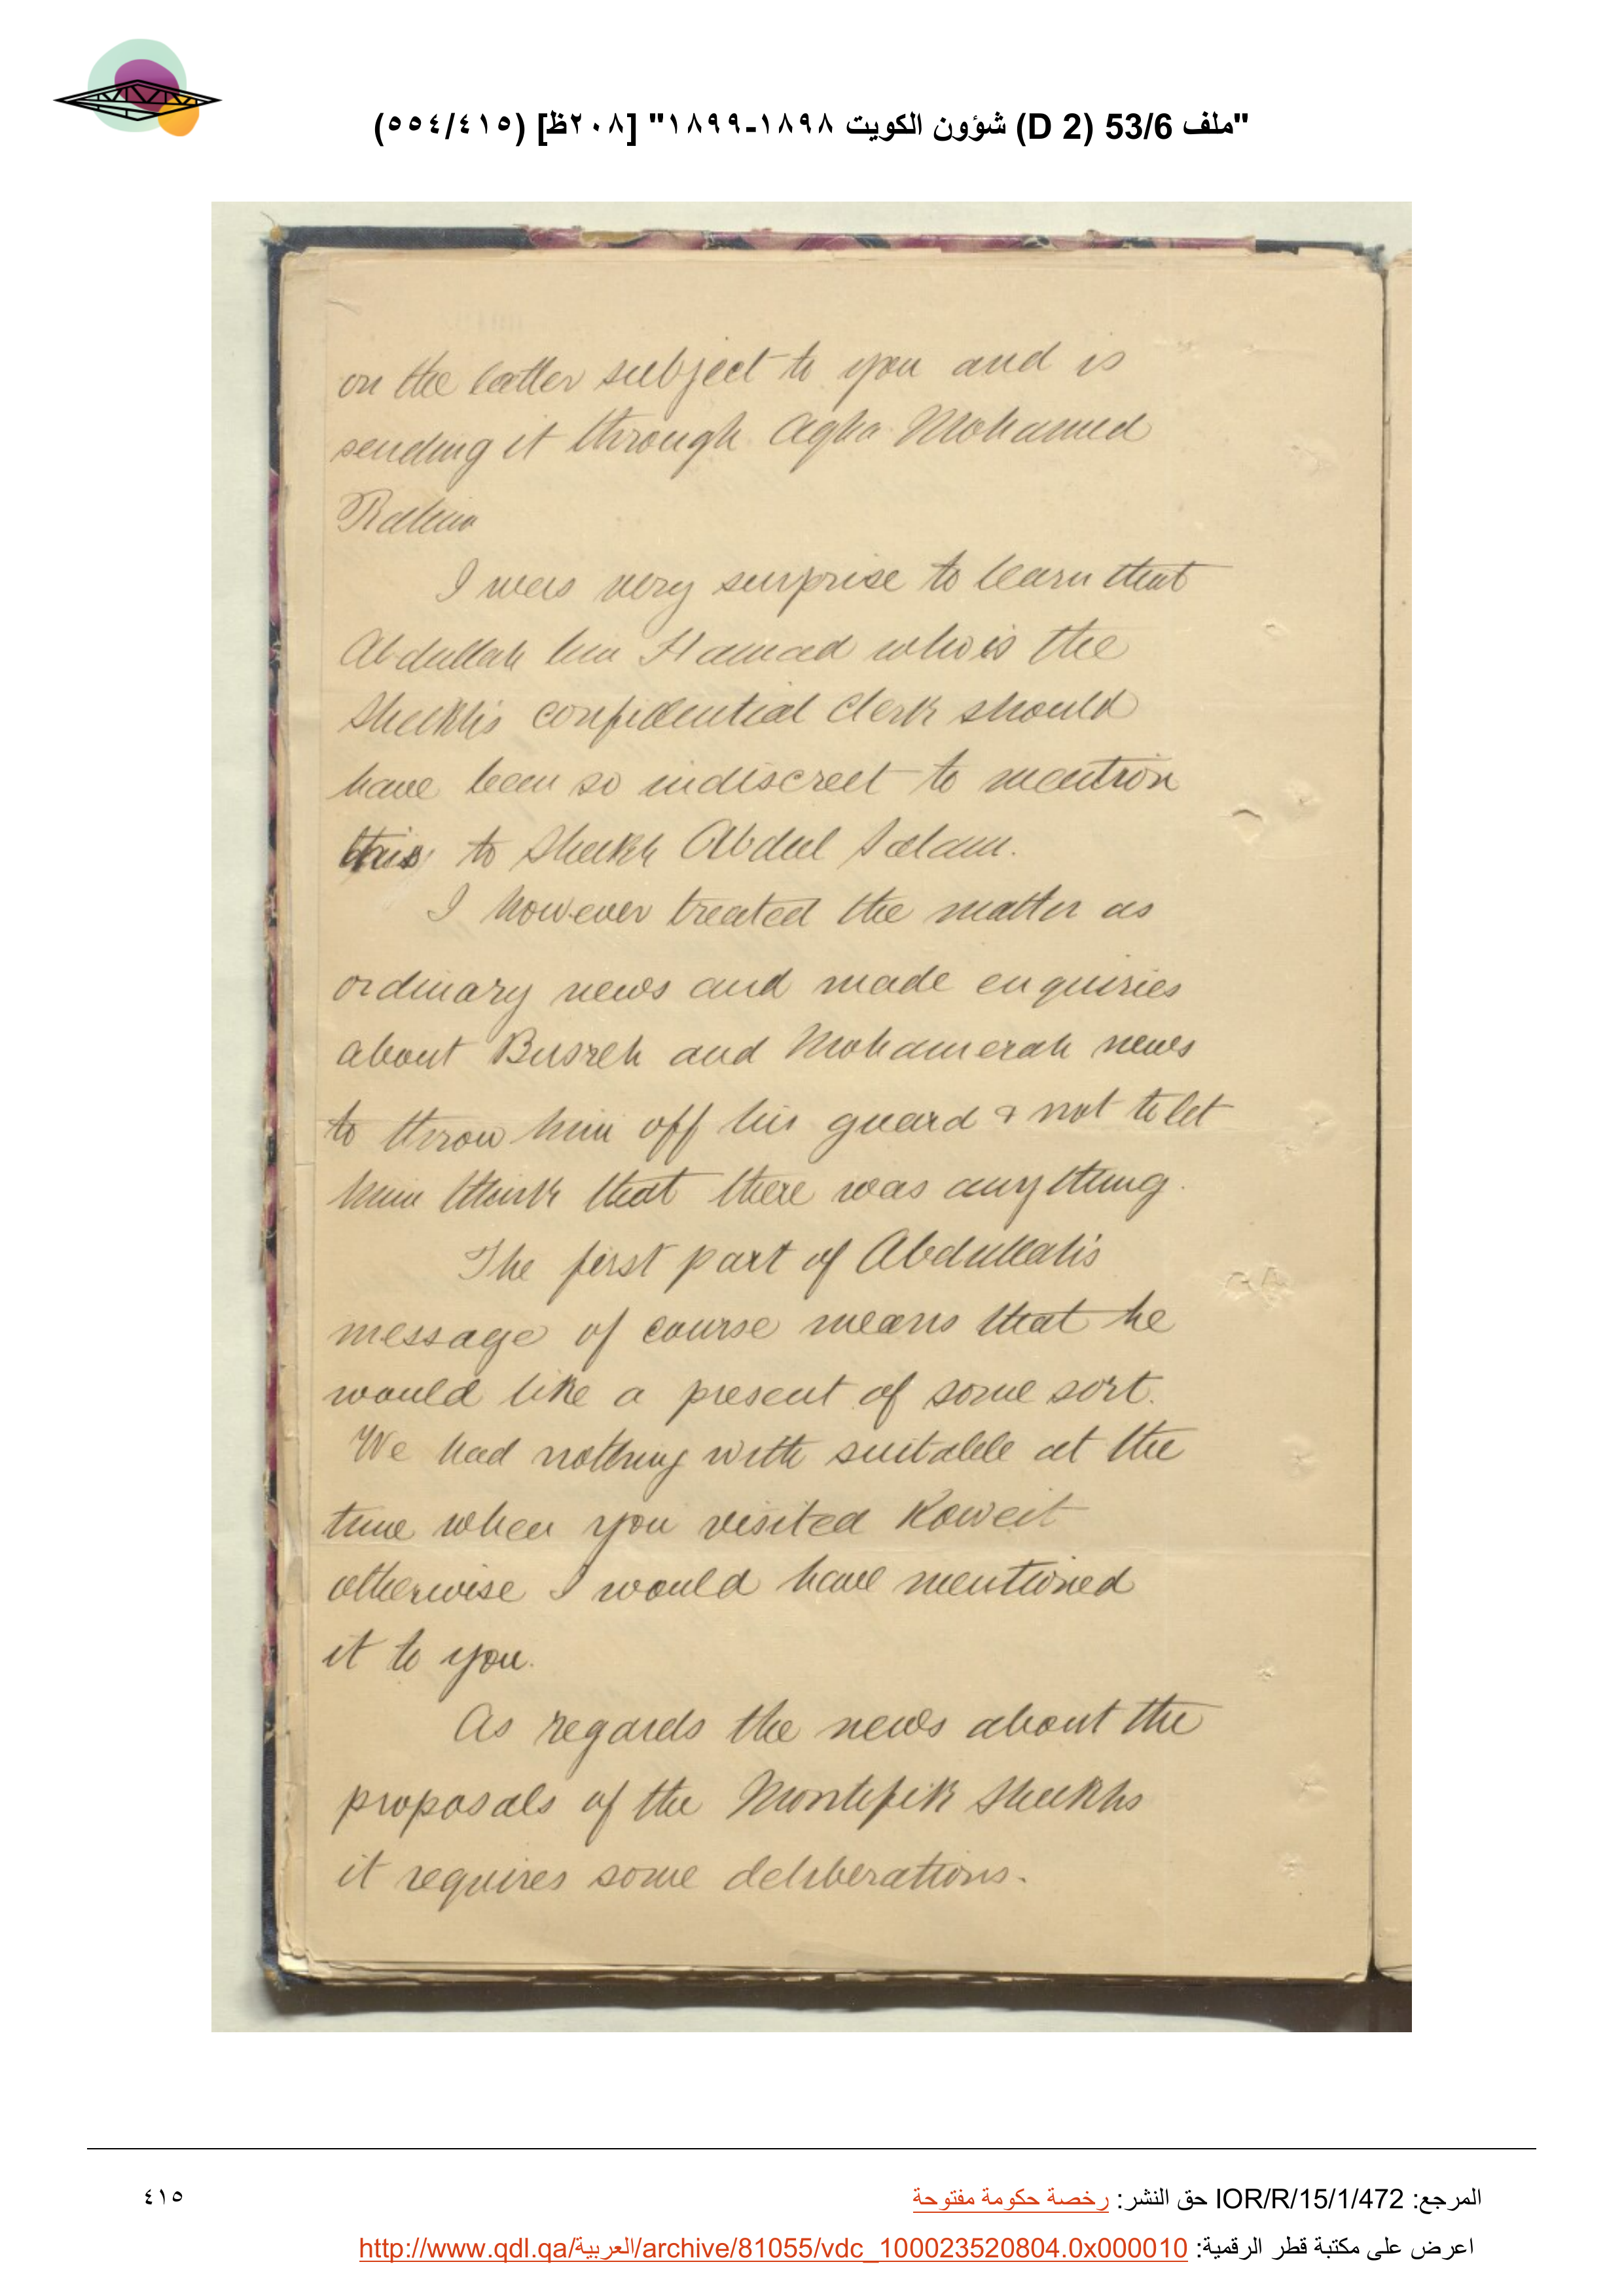 "ملف 53/6 (D 2) شؤون الكويت ١٨٩٨-١٨٩٩" [٢٠٨ظ] (٤١٥/٥٥٤)
on the latter subject to you and is
sending it through Agha Mohamed
Rahim
I was very surprise to learn that
Abdullah bin Hamad who is the
Sheikh's confidential clerk should
have been so indiscreet to mention
this to Sheikh Abdul Salam.
I however treated the matter as
ordinary news and made enquiries
about Busreh and Mohamerah news
to throw him off his guard & not to let
him think that there was anything.
The first part of Abdullah's
message of course means that he
would like a present of some sort.
We had nothing with suitable at the
time when you visited Koweit
otherwise I would have mentioned
it to you.
As regards the news about the
proposals of the Montefik Sheikhs
it requires some deliberations.
المرجع: IOR/R/15/1/472 حق النشر: رخصة حكومة مفتوحة
٤١٥
اعرض على مكتبة قطر الرقمية: http://www.qdl.qa/العربية/archive/81055/vdc_100023520804.0x000010